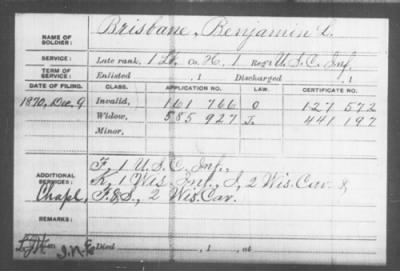 NAME OF SOLDIER: Brisbane, Benjamin L.
SERVICE: Late rank, 1 Lt. Co. H, 1 Reg't U.S.C. Inf.
TERM OF SERVICE: Enlisted , 1 Discharged , 1
DATE OF FILING. CLASS. APPLICATION NO. LAW. CERTIFICATE NO.
1870, Dec. 9 Invalid, 161 766 O 127 572
Widow, 585 927 J. 441 197
Minor,
ADDITIONAL SERVICES: F, 1 U.S.C. Inf.,
K, 1 Wis. Inf., I, 2 Wis. Cav. &
Chapl. F.&S., 2 Wis. Cav.
REMARKS:
Died , 1 , at